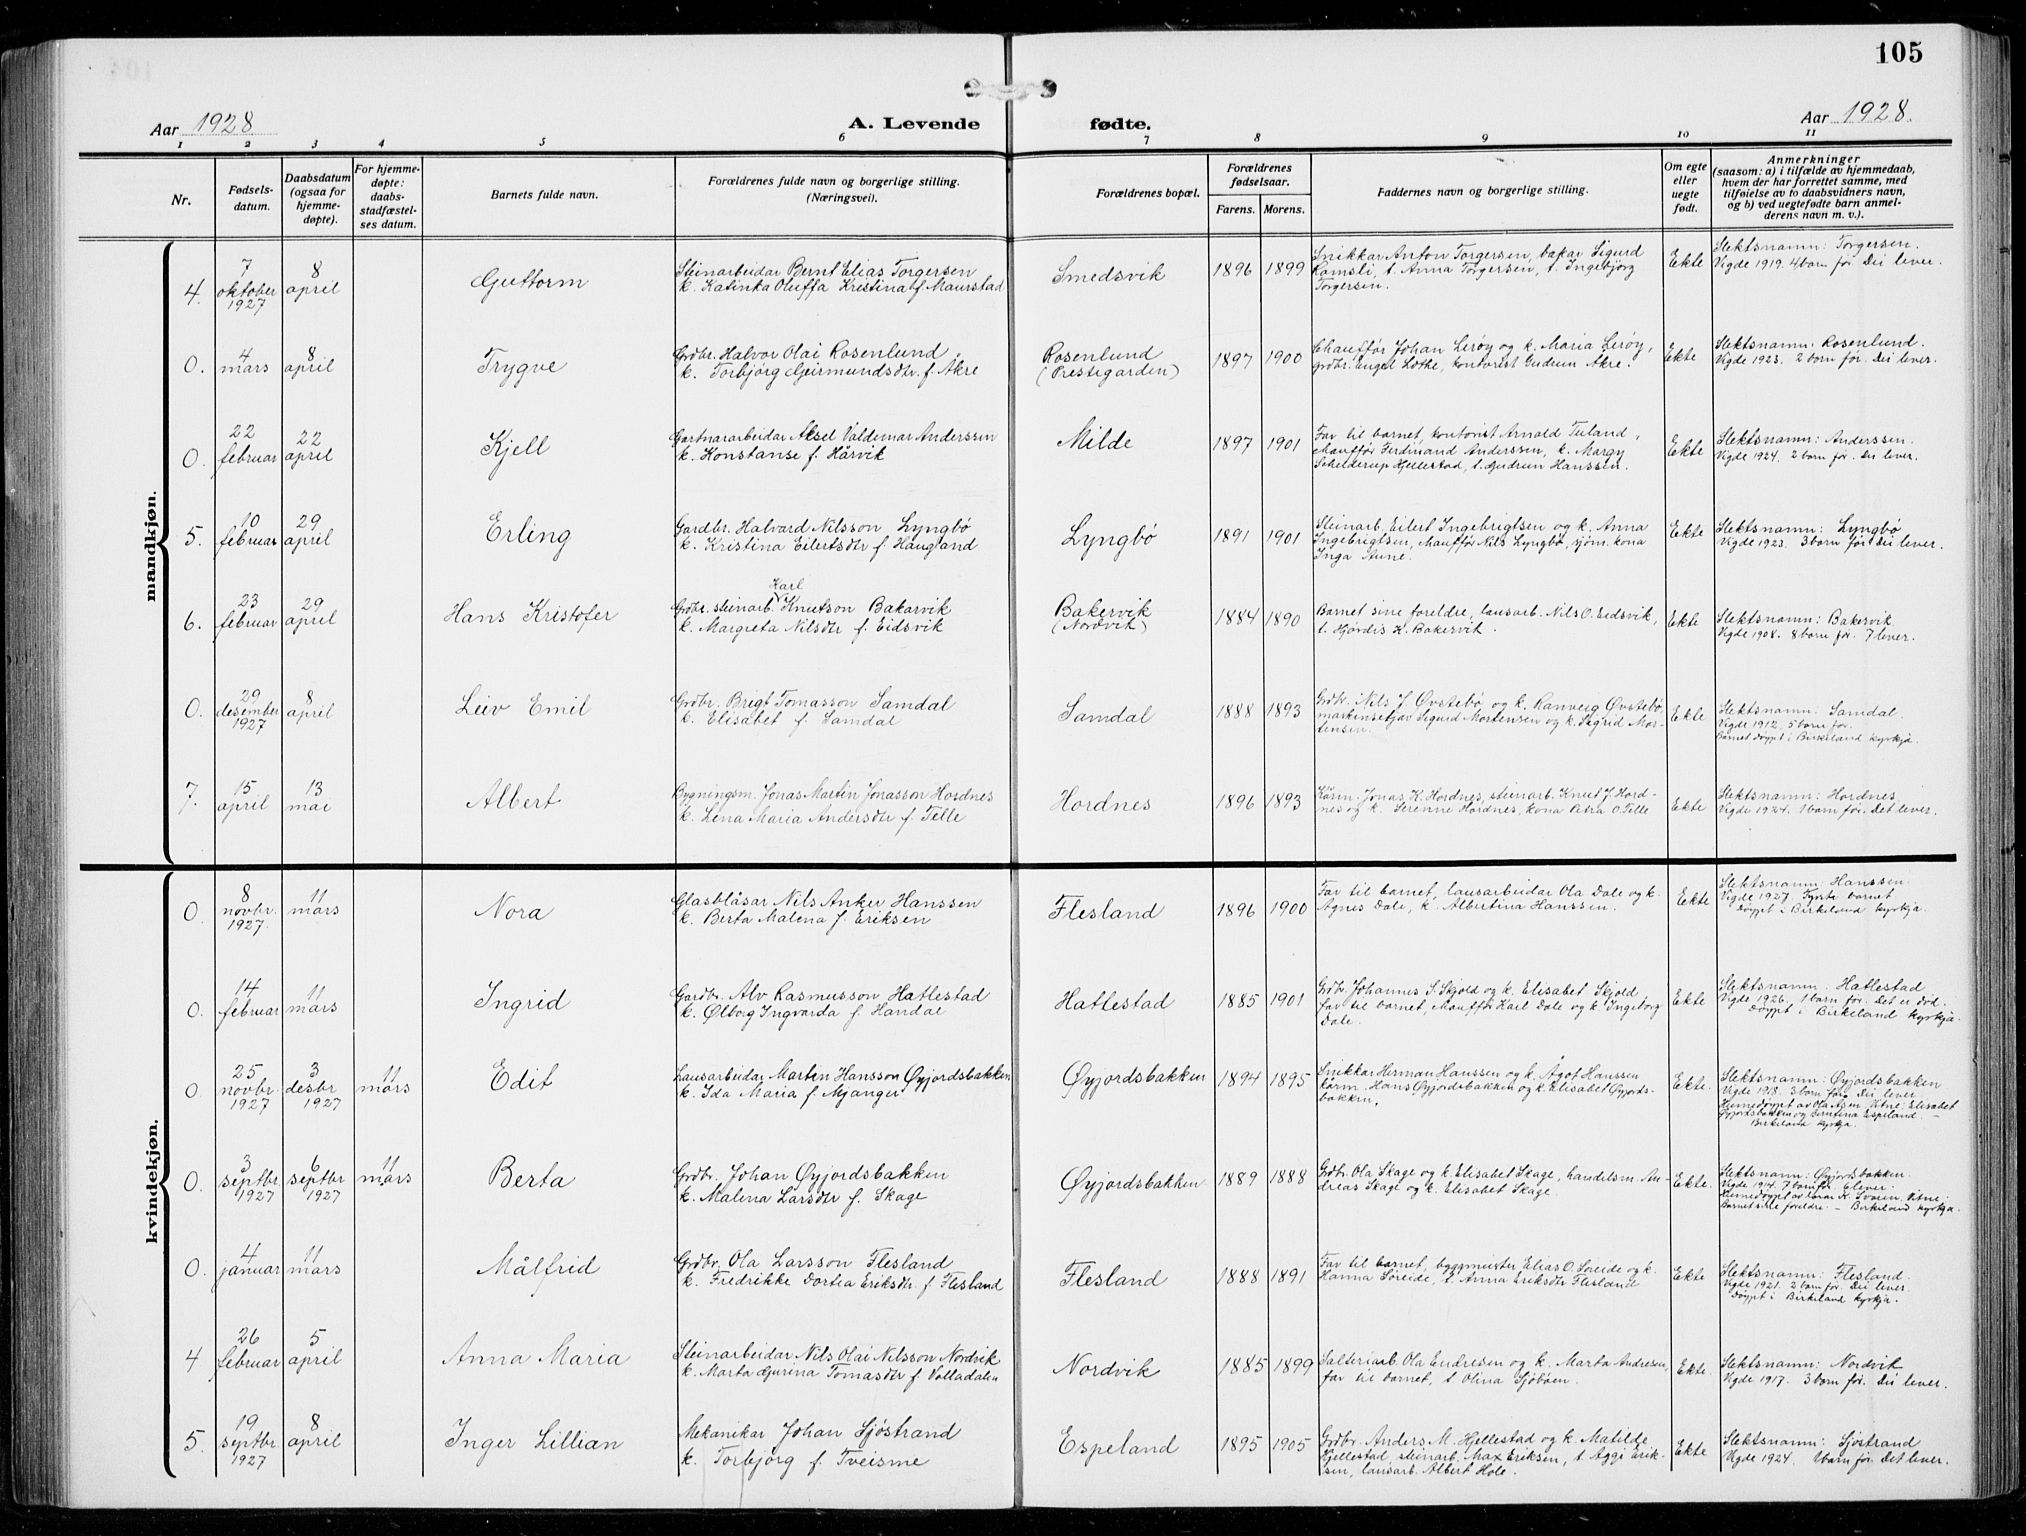 105
Aar 1928
A. Levende fødte.
Aar 1928.
1 2 3 4 5 6 7 8 9 10 11
Nr.
Fødsels-
datum.
Daabsdatum
(ogsaa for
hjemme-
døpte).
For hjemme-
døpte:
daabs-
stadfæstel-
ses datum.
Barnets fulde navn.
Forældrenes fulde navn og borgerlige stilling.
(Næringsvei).
Forældrenes bopæl.
Forældrenes
fødselsaar.
Farens. Morens.
Faddernes navn og borgerlige stilling.
Om egte
eller
uegte
født.
Anmerkninger
(saasom: a) i tilfælde av hjemmedaab,
hvem der har forrettet samme, med
tilføielse av to daabsvidners navn,
og b) ved uegtefødte barn anmel-
derens navn m. v.).
mandkjøn.
4.
7
oktober
1927
8
april
Guttorm
Steinarbeidar Bernt Elias Torgersen
k. Katinka Oluffa Kristina f. Maurstad
Smedsvik
1896 1899
Snikkar Anton Torgersen, bakar Sigurd
Ramsli, t. Anna Torgersen, t. Ingebjørg
Torgersen.
Ekte
Slektsnamn: Torgersen.
Vigde 1919. 4 born før. Dei lever.
0.
4
mars
8
april
Trygve
Grdbr. Halvor Olai Rosenlund
k. Torbjørg Geirmundsdtr. f. Akre
Rosenlund
(Prestegarden)
1897 1900
Chauffør Johan Lerøy og k. Maria Lerøy,
grdbr. Engel Lothe, kontorist Gudrun Akre.
Ekte
Slektsnamn: Rosenlund.
Vigde 1923. 2 born før. Dei lever.
0.
22
februar
22
april
Kjell
Gartnararbeidar Aksel Valdemar Anderssen
k. Konstanse f. Hårvik
Milde
1897 1901
Far til barnet, kontorist Arnold Tuland,
chauffør Ferdinand Anderssen, k. Margy
Schelderup Hjellestad, t. Gudrun Hanssen.
Ekte
Slektsnamn: Anderssen.
Vigde 1924. 2 born før. Dei lever.
5.
10
februar
29
april
Erling
Gardbr. Halvard Nilsson Lyngbø
k. Kristina Eilertsdtr f. Haugland
Lyngbø
1891 1901
Steinarb. Eilert Ingebrigtsen og k. Anna
Ingebrigtsen, chauffør Nils Lyngbø, sjøm. kona
Inga Aune.
Ekte
Slektsnamn: Lyngbø
Vigde 1923. 3 born før. Dei lever.
6.
23
februar
29
april
Hans Kristofer
Karl
Grdbr. steinarb. Knutson Bakarvik
k. Margreta Nilsdtr f. Eidsvik
Bakervik
(Nordvik)
1884 1890
Barnet sine foreldre, lausarb. Nils O. Eidsvik,
t. Hjørdis K. Bakervik.
Ekte
Slektsnamn: Bakervik.
Vigde 1908. 8 born før. 7 lever.
0.
29
desember
1927
8
april
Leiv Emil
Grdbr. Brigt Tomasson Samdal
k. Elisabet f. Samdal
Samdal
1888 1893
Grdb. Nils J. Øvstebø og k. Ranveig Øvstebø,
maskinsetjar Sigurd Mortensen og k. Sigrid Mor-
tensen.
Ekte
Slektsnamn: Samdal.
Vigde 1912. 5 born før.
Barnet døypt i Birkeland kyrkja.
7.
15
april
13
mai
Albert
Bygningsm. Jonas Martin Jonasson Hordnes
k. Lina Maria Andersdtr f. Telle
Hordnes
1896 1893
Kårm. Jonas K. Hordnes, steinarb. Knut J. Hord-
nes og k. Serenne Hordnes, kona Atra O. Telle
Ekte
Slektsnamn: Hordnes
Vigde 1924. 1 born før. Det lever.
kvindekjøn.
0.
8
novbr.
1927.
11
mars
Nora
Glasblåsar Nils Anker Hanssen
k. Berta Malena f. Eriksen
Flesland
1896 1900
Far til barnet, lausarbeidar Ola Dale og k.
Agnes Dale, k. Albertina Hanssen.
Ekte
Slektsnamn: Hanssen.
Vigde 1927. Fyrsta barnet
Døypt i Birkeland kyrkja.
0.
14
februar
11
mars
Ingrid
Gardbr. Alv Rasmusson Hatlestad
k. Ølborg Ingvarda f. Handal
Hatlestad
1885 1901
Grdb. Johannes S. Skjold og k. Elisabet Skjold
far til barnet, chauffør Karl Dale og k. Ingeborg
Dale.
Ekte
Slektsnamn: Hatlestad
Vigde 1926. 1 born før. Det er død.
Døypt i Birkeland kyrkja.
0.
25
novbr.
1927
3
desbr
1927
11
mars
Edit
Lausarbeidar Marten Hansson Øyjordsbakken
k. Ida Maria f. Mjanger
Øyjordsbakken
1894 1895
Snikkar Herman Hanssen og k. Ågot Hanssen
kårm. Hans Øyjordsbakken og k. Elisabet Øyjords-
bakken.
Ekte.
Slektsnamn: Øyjordsbakken
Vigde 1918. 3 born før. Dei lever.
Heimedøypt av Ola Åsen. Vitne: Elisabet
Øyjordsbakken og Berntina Espeland. –
Birkeland kyrkja.
0.
3
septbr
1927
6
septbr
1927
11
mars
Berta
Grdbr. Johan Øyjordsbakken
k. Malena Larsdtr f. Skage
Øyjordsbakken
1889 1888
Grdb. Ola Skage og k. Elisabet Skage, handelsm. An-
dreas Skage og k. Elisabet Skage.
Ekte.
Slektsnamn: Øyjordsbakken.
Vigde 1914. 7 born før. 6 lever.
Heimedøypt av Vitne:
Barnet sine foreldre. – Birkeland kyrkja.
0.
4
januar
11
mars
Målfrid
Grdbr. Ola Larsson Flesland
k. Fredrikke Dortea Eriksdtr. f. Flesland
Flesland
1888 1891
Far til barnet, byggmeister Elias O. Søreide og k.
Hanna Søreide, t. Anna Eriksdtr Flesland
Ekte
Slektsnamn: Flesland.
Vigde 1921. 2 born før. Dei lever.
Døypt i Birkeland kyrkja.
4
26
februar
5
april
Anna Maria
Steinarbeidar Nils Olai Nilsson Nordvik
k. Marta Gurina Tomasdtr f. Valladalen
Nordvik
1885 1899
Salteriarb. Ola Endresen og k. Marta Andresen,
far til barnet, t. Olina Sjøbøen.
Ekte.
Slektsnamn: Nordvik
Vigde 1917. 3 born før. Dei lever.
5.
19
septbr.
1927
8
april
Inger Lillian
Mekanikar Johan Sjøstrand
k. Torbjørg f. Tveisme
Espeland
1895 1905
Grdbr. Anders M. Hjellestad og k. Matilde
Hjellestad, steinarb. Max Eriksen, t. Aggi Erik-
sen, lausarb. Albert Hole.
Ekte
Slektsnamn: Sjøstrand
Vigde 1924. 1 born før. Det lever.